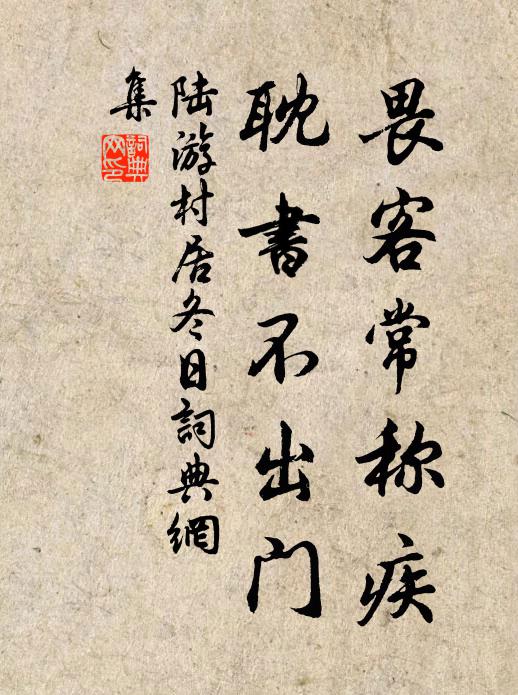 畏客常称疾
耽書不出门
陆游村居冬日詞典網
集
詞典
网印